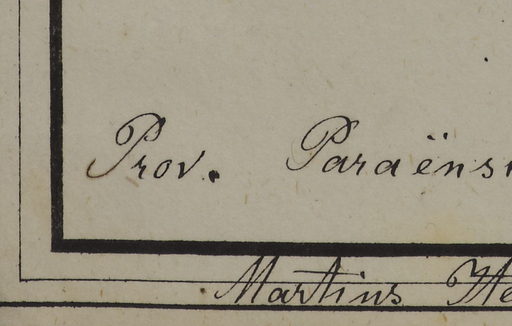 Prov. Paraëns
Martins He